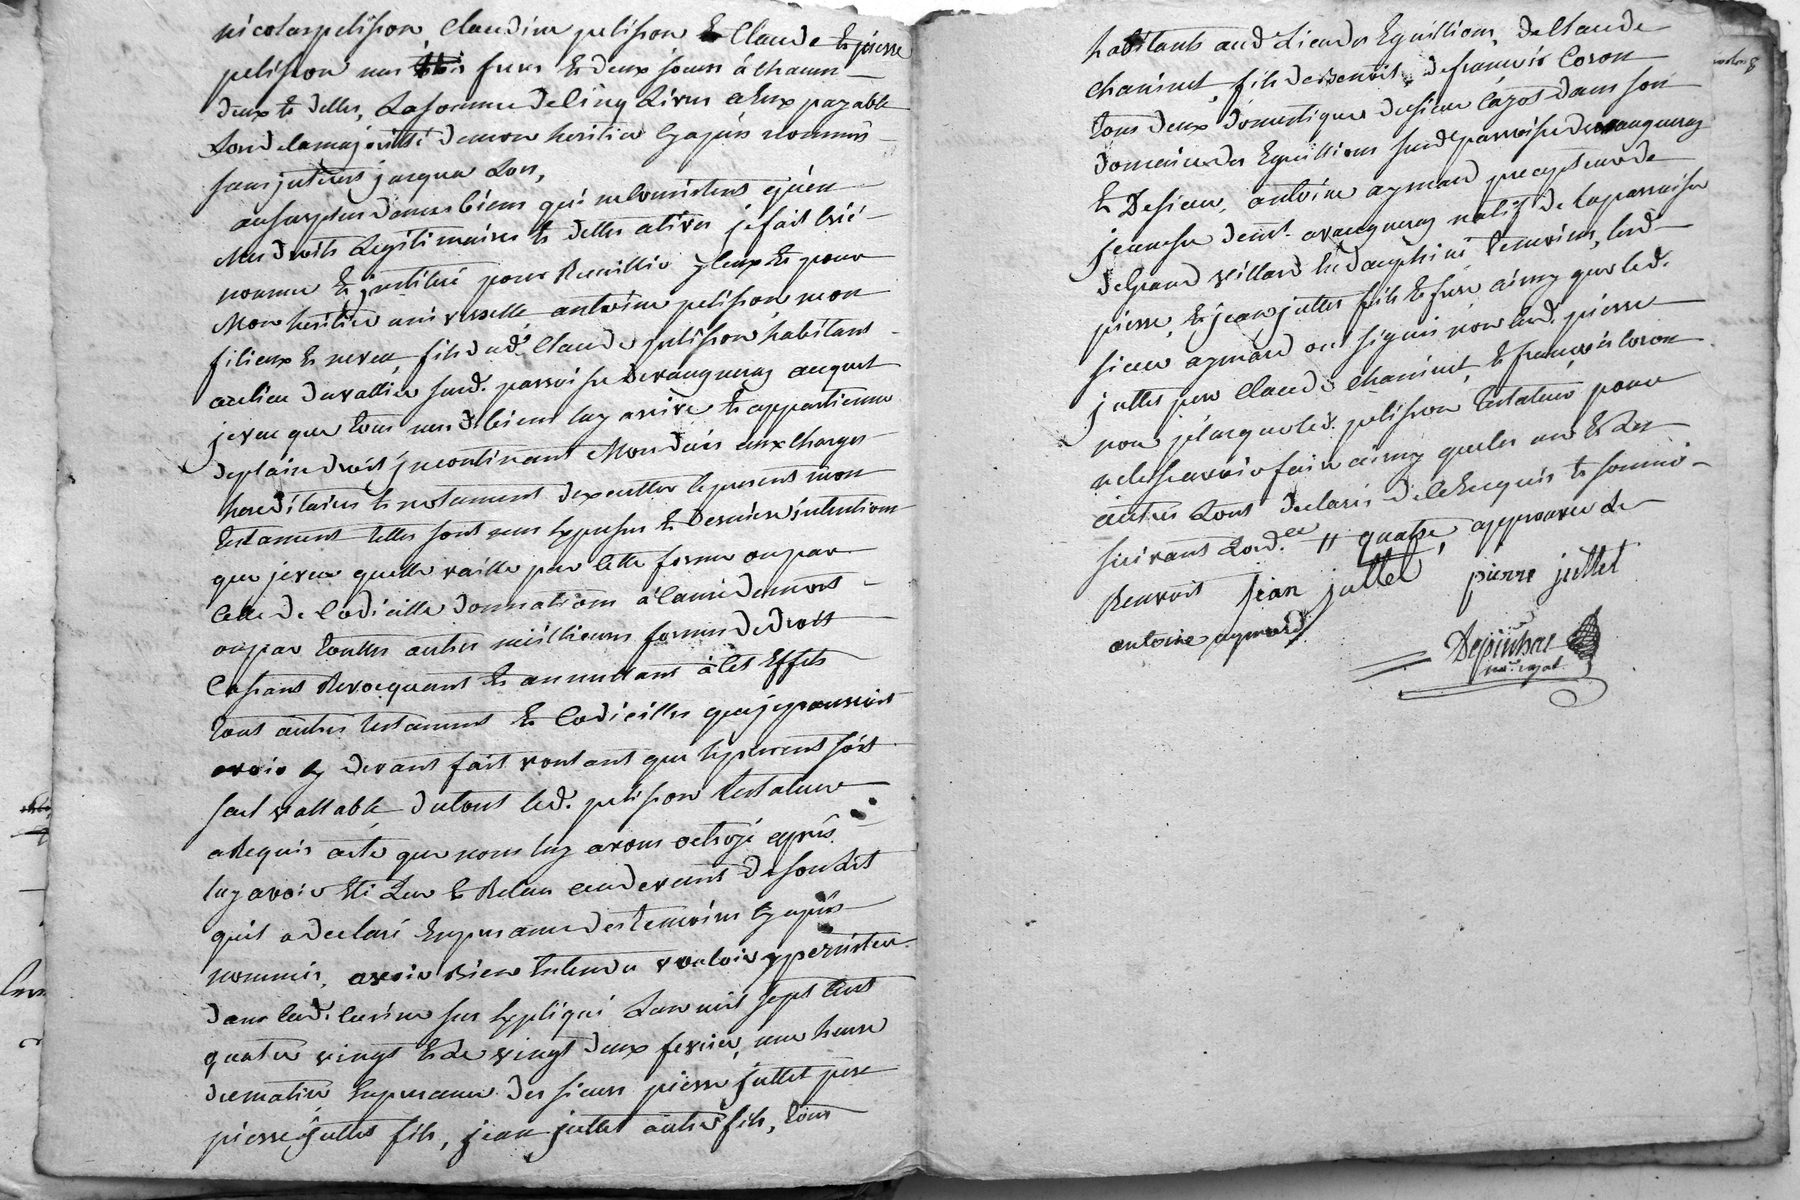 nicolas pelisson, Claudine pelisson Et Claude Et pierre
pelisson mes frères Et deux soeurs á chacun
deux Et delles, La somme de Cinq Livres á Eux payable
Lors de la majoritté de mon heritier Cy après nommés
sans jnterest jusqua Lors,
au surplus de mes biens qui ne Consistent qu'en
Mes droits Legitimaires Et delles ativés je fait Créé
nommé Et jnstitué pour Recüillir yceux Et pour
Mon heritier universelle antoine pelisson mon
filieux Et neveu fils dud. Claude pelisson habitant
au lieu du vattier sud. parroisse de vaugneray auquel
je veu que tous mesd. biens luy arrive Et appartienne
de plain droit jncontinant Mon décés aux charges
hereditaires Et notament dexecutter Le present mon
testament telles sont mes Expresses Et dernieres intentions
que je veux quelle vaille par Cette forme ou par
Celle de Codicille donnations á Cause de mort
ou par touttes autres meillieures formes de droit
Cassant Revocquant Et annullant á Cet Effet
tous autres testament Et Codicilles que je pourrois
avoir Cy devant fait voulant que Le present soit
seul vallable du tout led. pelisson testateur
a Requis acte que nous luy avons octroyé après
luy avoir Eté Leu Et Releu au devant de son Lit
qu'il a declaré En presance des temoins Cy après
nommés, avoir bien Entendu vouloir y persister
dans lad. Cuisine sus Expliqué Lan mil sept Cent
quatre vingt Et Le vingt deux fevrier, une heure
du matin En presance des sieurs pierre juttet pere
pierre juttet fils, jean juttet autre fils, tous
habitants aud. Lieu des Eguillions, de Claude
Chaninet, fils de Benoit, de françois Coron
tous deux domestiques du sieur Cayot dans son
domaine des Eguillions sud. parroisse de vaugneray
Et De sieur, antoine aymard precepteur de
jeunesse dem.t a vaugneray natif de la parroisse
de Grand villard En dauphiné temoins, lesd.
pierre, Et jean juttet fils Et frere ainsy que led.
sieur aymard ont signés non Led. pierre
juttet pere Claude Chaninet, Et françois Coron
non plus que led. pelisson testateur pour
ne le savoir faire ainsy que les uns Et Les
autres Lont declarés de ce Enquis Et sommé
suivant Lord.ce // quatre, approuvée Le
Renvois Jean juttet pierre juttet
antoine aymard
not. royal